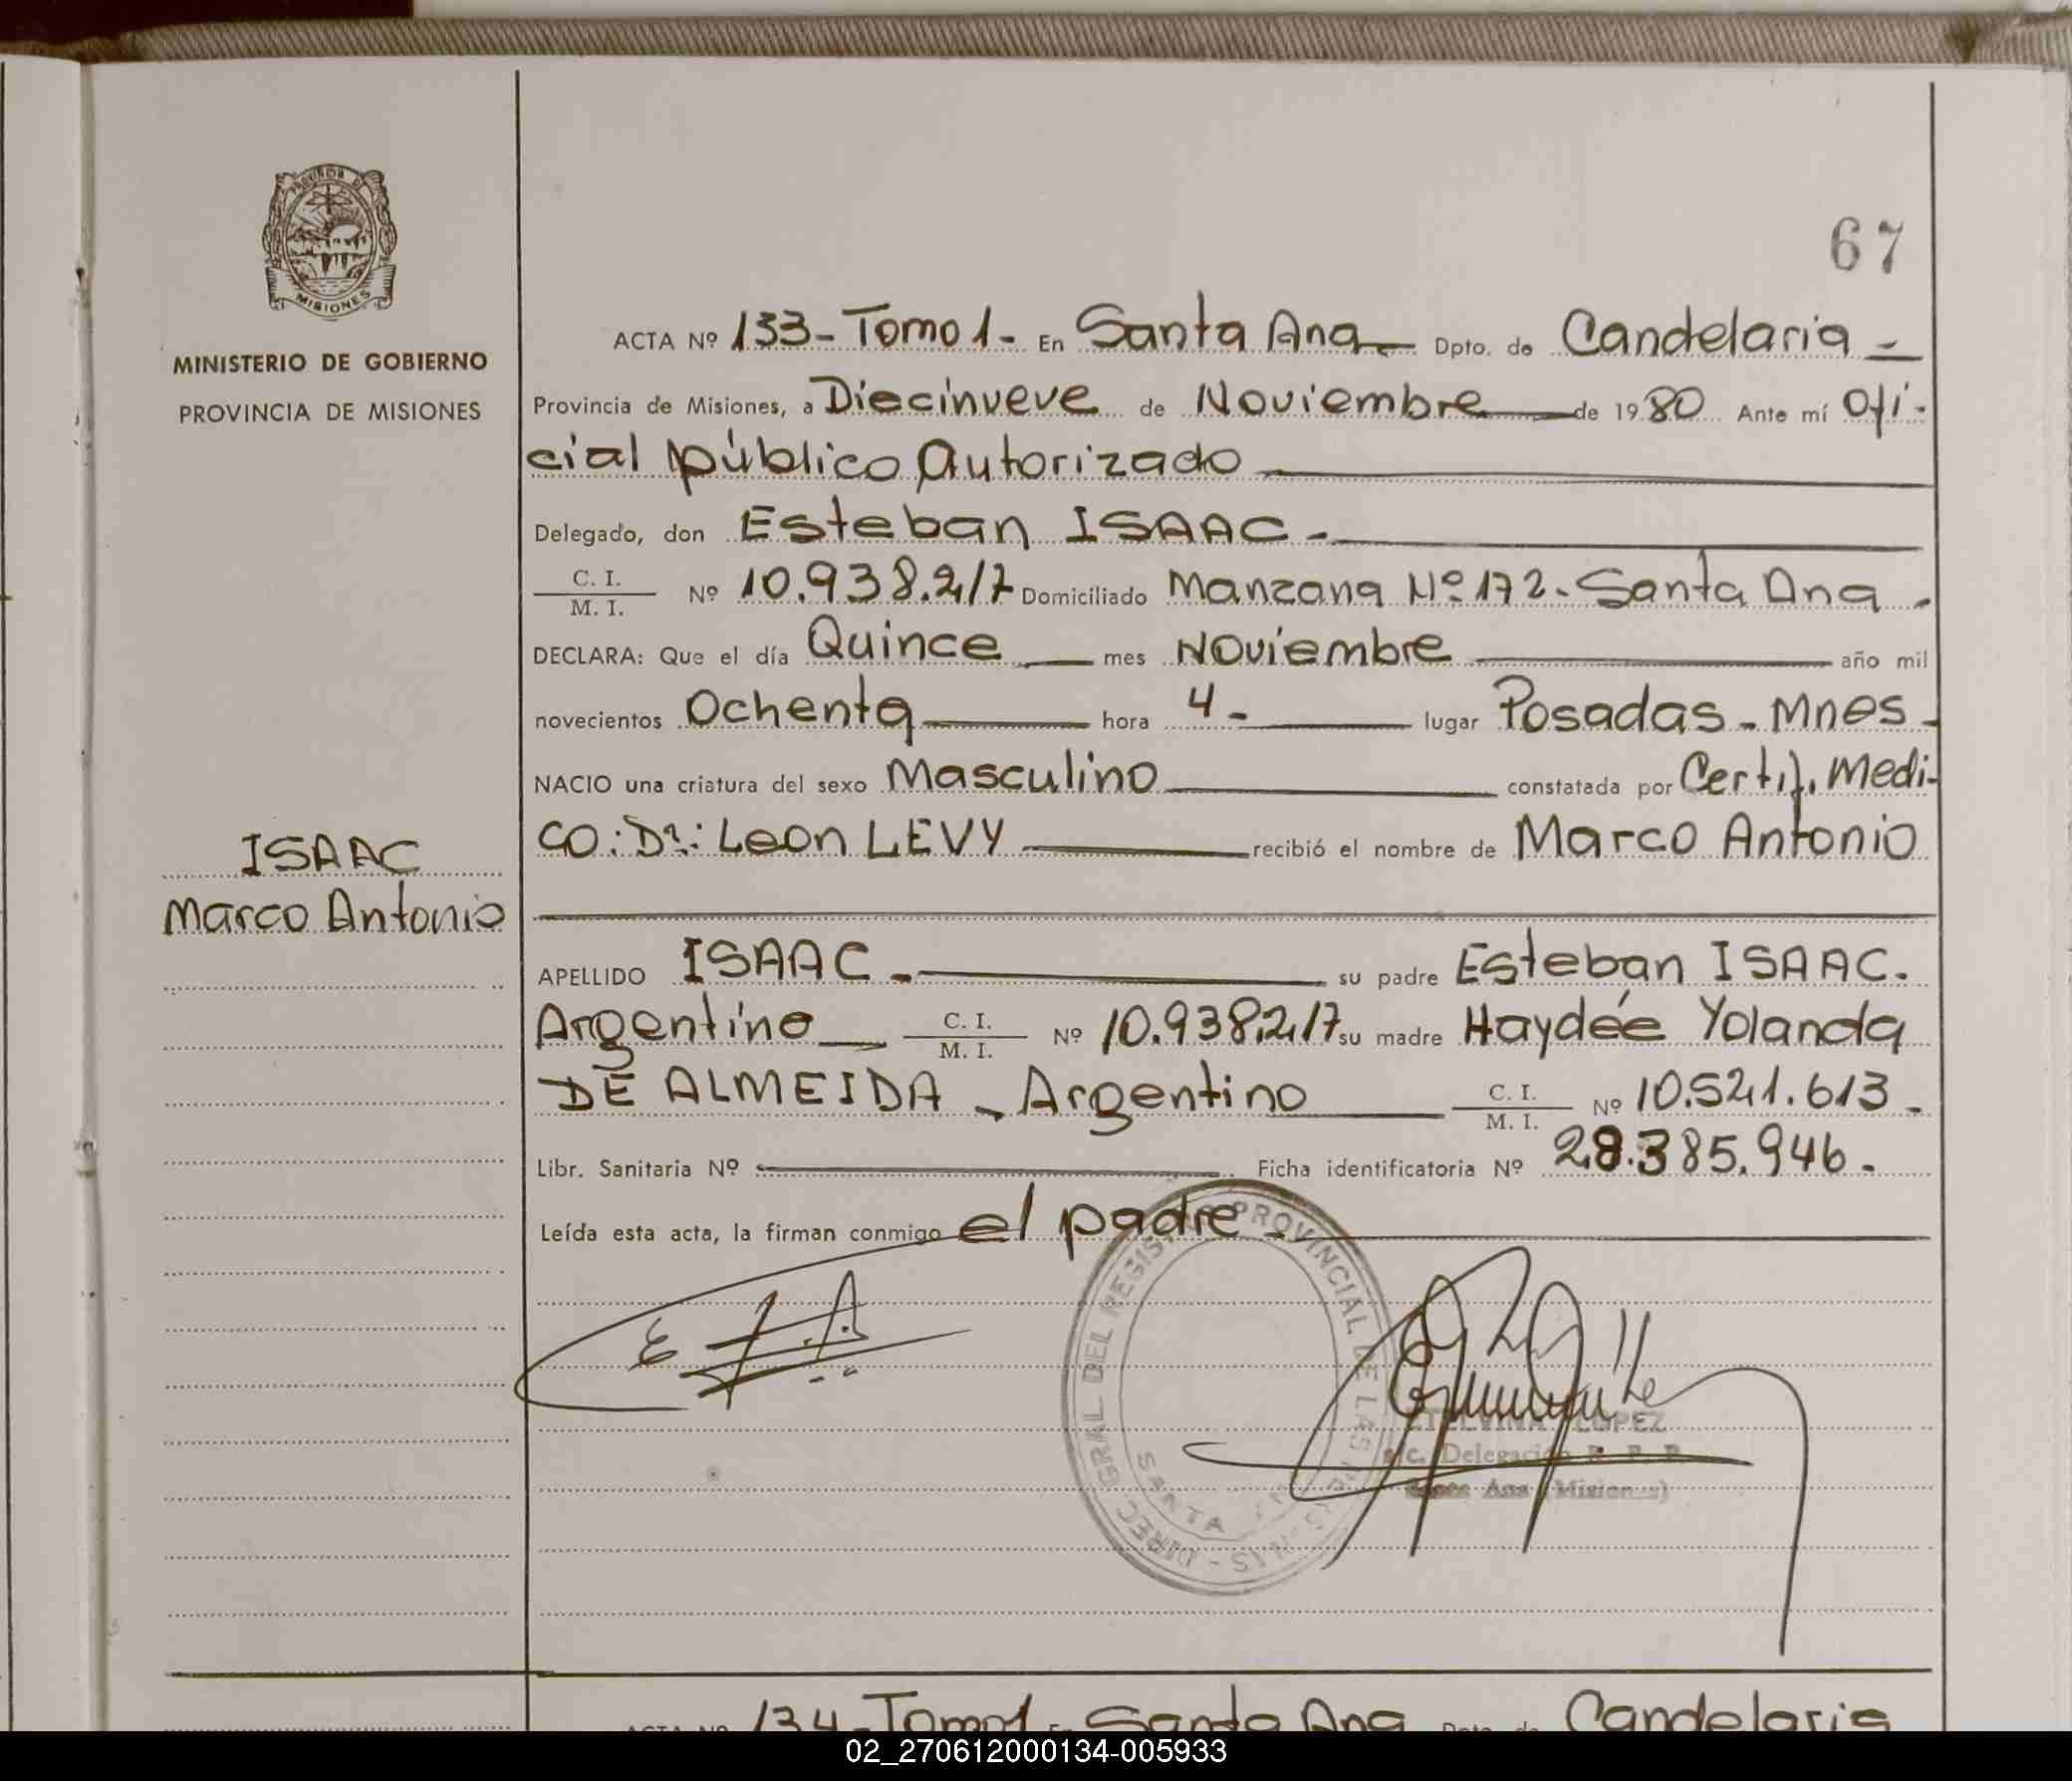 PROVINCIA DE
MISIONES
MINISTERIO DE GOBIERNO
PROVINCIA DE MISIONES
ISAAC
Marco Antonio
67
ACTA Nº 133-Tomo 1- En Santa Ana- Dpto. de Candelaria-
Provincia de Misiones, a Diecinueve de Noviembre de 1980 Ante mí Ofi-
cial público Autorizado
Delegado, don Esteban ISAAC-
C. I.
M. I. Nº 10.938.217 Domiciliado Manzana Nº 172. Santa Ana.
DECLARA: Que el día Quince mes Noviembre año mil
novecientos Ochenta hora 4- lugar Posadas-Mnes-
NACIO una criatura del sexo Masculino constatada por Certif. Medi-
co: Dr: Leon LEVY recibió el nombre de Marco Antonio
APELLIDO ISAAC- su padre Esteban ISAAC.
Argentino C. I.
M. I. Nº 10.938.217 su madre Haydée Yolanda
DE ALMEIDA - Argentino C. I.
M. I. Nº 10.521.613-
Libr. Sanitaria Nº Ficha identificatoria Nº 28.385.946.
Leída esta acta, la firman conmigo el padre-
DIREC. GRAL. DEL REGISTRO PROVINCIAL DE LAS PERSONAS
SANTA ANA
LOPEZ
Delegación R. P. P.
Santa Ana (Misiones)
ACTA Nº 134-Tomo 1- En Santa Ana Dpto. de Candelaria
02_270612000134-005933